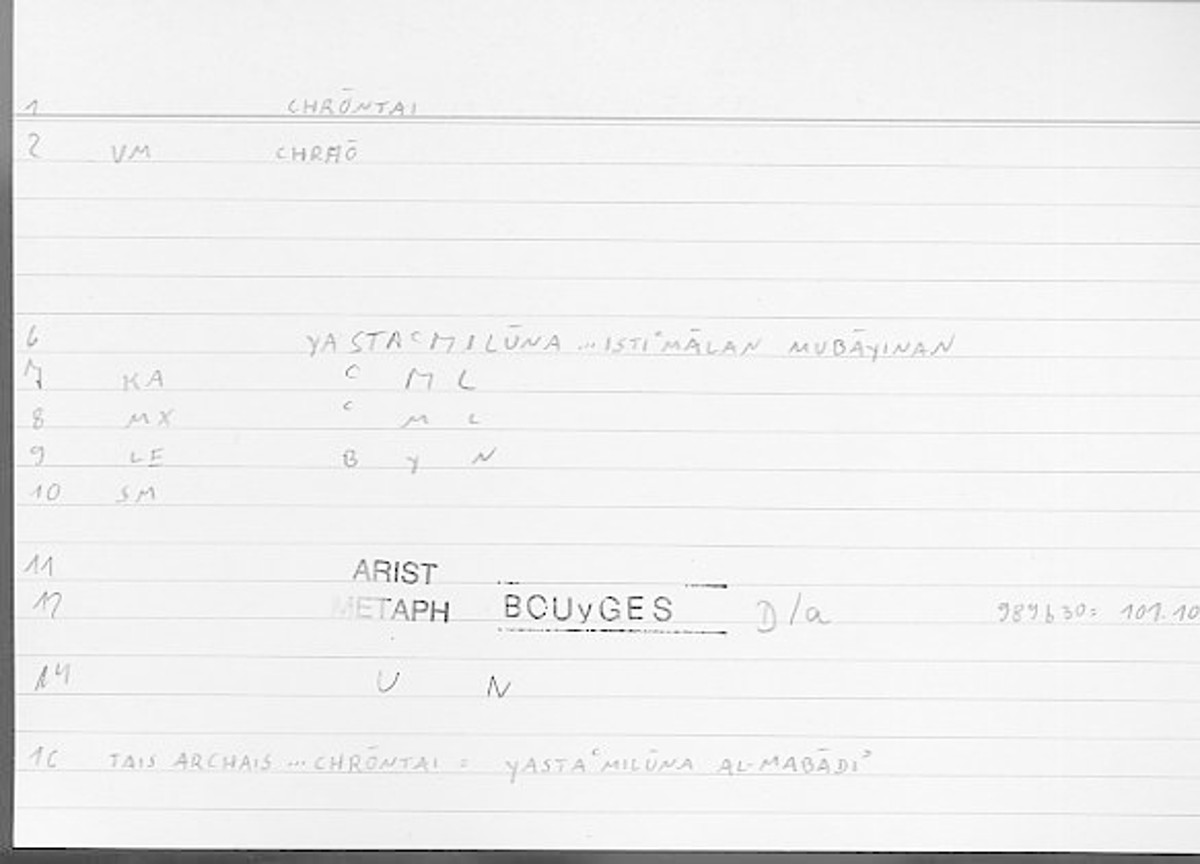 1 CHRŌNTAI
2 VM CHRAŌ
6 YASTAᶜMILŪNA ... ISTIᶜMĀLAN MUBĀYINAN
7 KA ᶜ M L
8 MX ᶜ M L
9 LE B Y N
10 SM
11 ARIST
12 METAPH BOUyGES D/a 989b30: 101.10
14 U N
16 TAIS ARCHAIS ... CHRŌNTAI = YASTAᶜMILŪNA AL-MABĀDIʾ